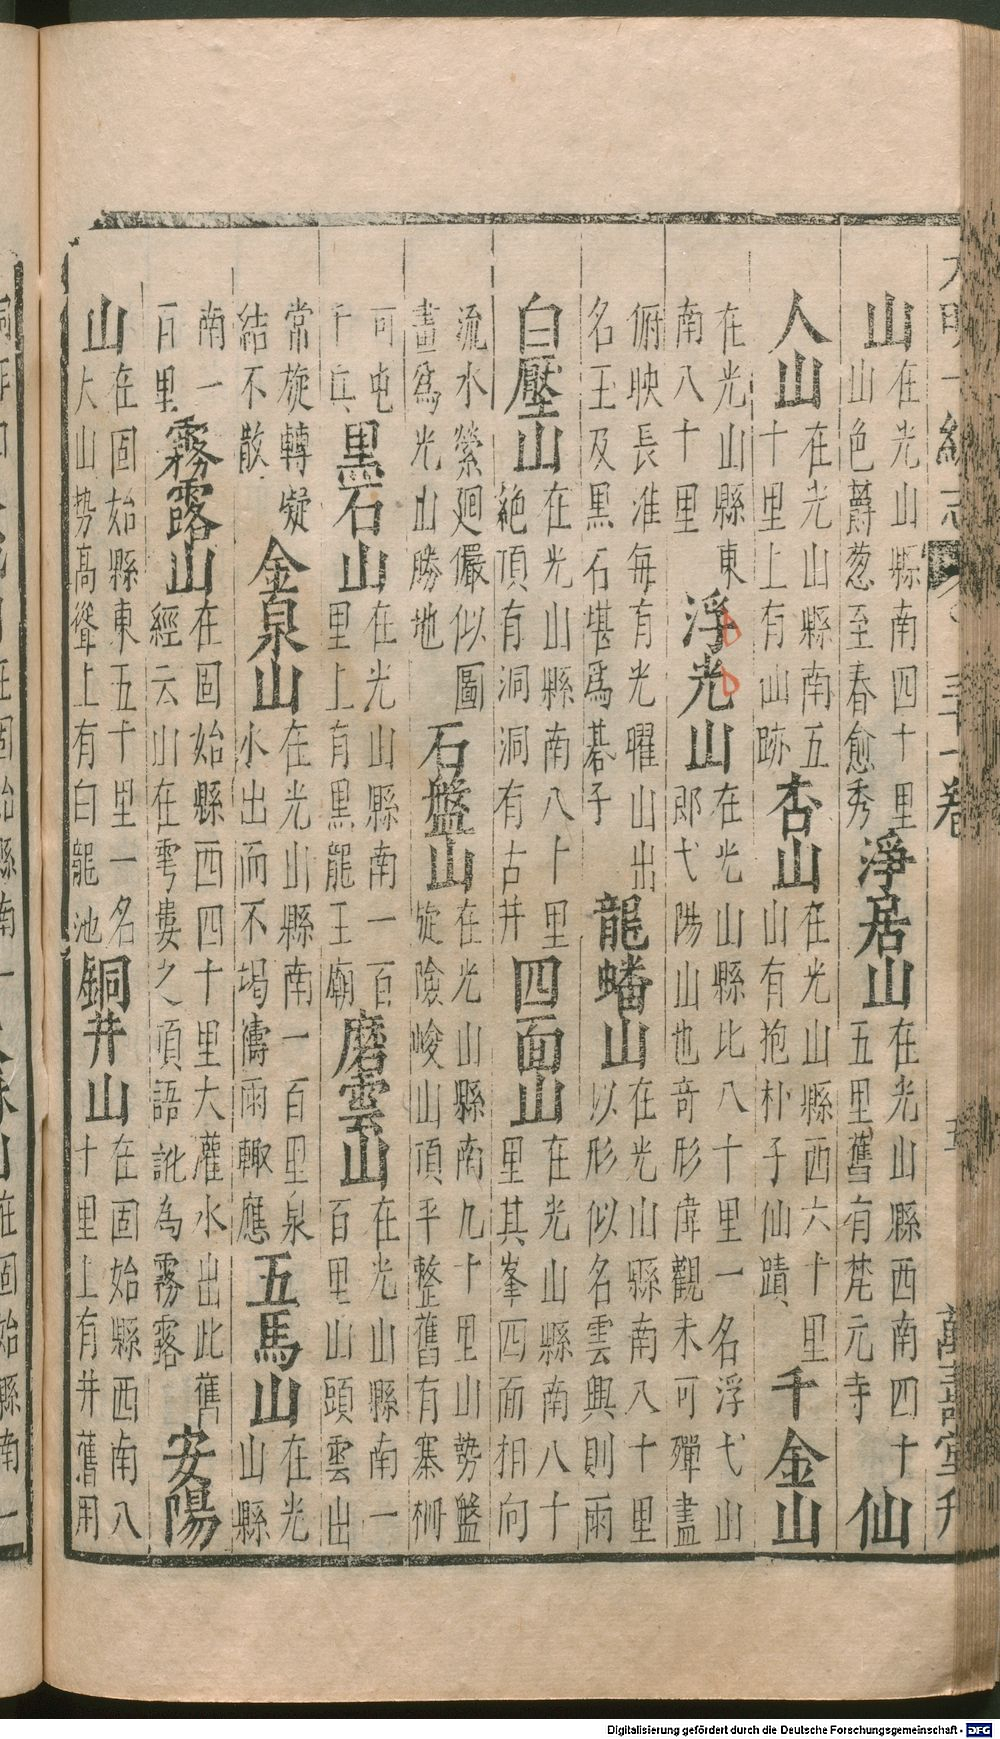 大明一統志 三十一卷 五 萬壽堂刊
山
在光山縣南四十里
山色爵葱至春愈秀
淨居山
在光山縣西南四十
五里舊有梵元寺
仙
人山
在光山縣南五
十里上有山跡
杏山
在光山縣西六十里
山有抱朴子仙蹟
千金山
在光山縣東
南八十里
浮光山
在光山縣比八十里一名浮弋山
郎弋陽山也奇形偉觀未可殫盡
俯映長淮每有光曜山出
名玉及黑石堪爲碁子
龍蟠山
在光山縣南八十里
以形似名雲興則雨
白壓山
在光山縣南八十里
絶頂有洞洞有古井
四面山
在光山縣南八十
里其峯四面相向
流水縈廻儼似圖
畫爲光山勝地
石盤山
在光山縣南九十里山勢盤
旋險峻山頂平整舊有寨柵
可屯
千兵
黑石山
在光山縣南一百
里上有黑龍王廟
磨雲山
在光山縣南一
百里山頭雲出
常旋轉凝
結不散
金泉山
在光山縣南一百里泉
水出而不竭禱雨輙應
五馬山
在光
山縣
南一
百里
霧露山
在固始縣西四十里大灌水出此舊
經云山在雩婁之項語訛為霧露
安陽
山
在固始縣東五十里一名
大山势高聳上有白龍池
銅井山
在固始縣西南八
十里上有井舊用
Digitalisierung gefördert durch die Deutsche Forschungsgemeinschaft - DFG